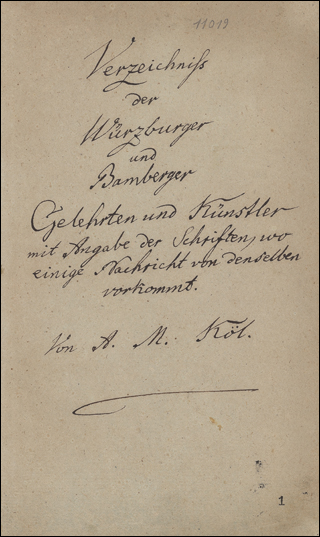 11019
Verzeichniss
der
Würzburger
und
Bamberger
Gelehrten und Künstler
mit Angabe der Schriften, wo
einige Nachricht von denselben
vorkommt.
Von A. M. Köl.
1